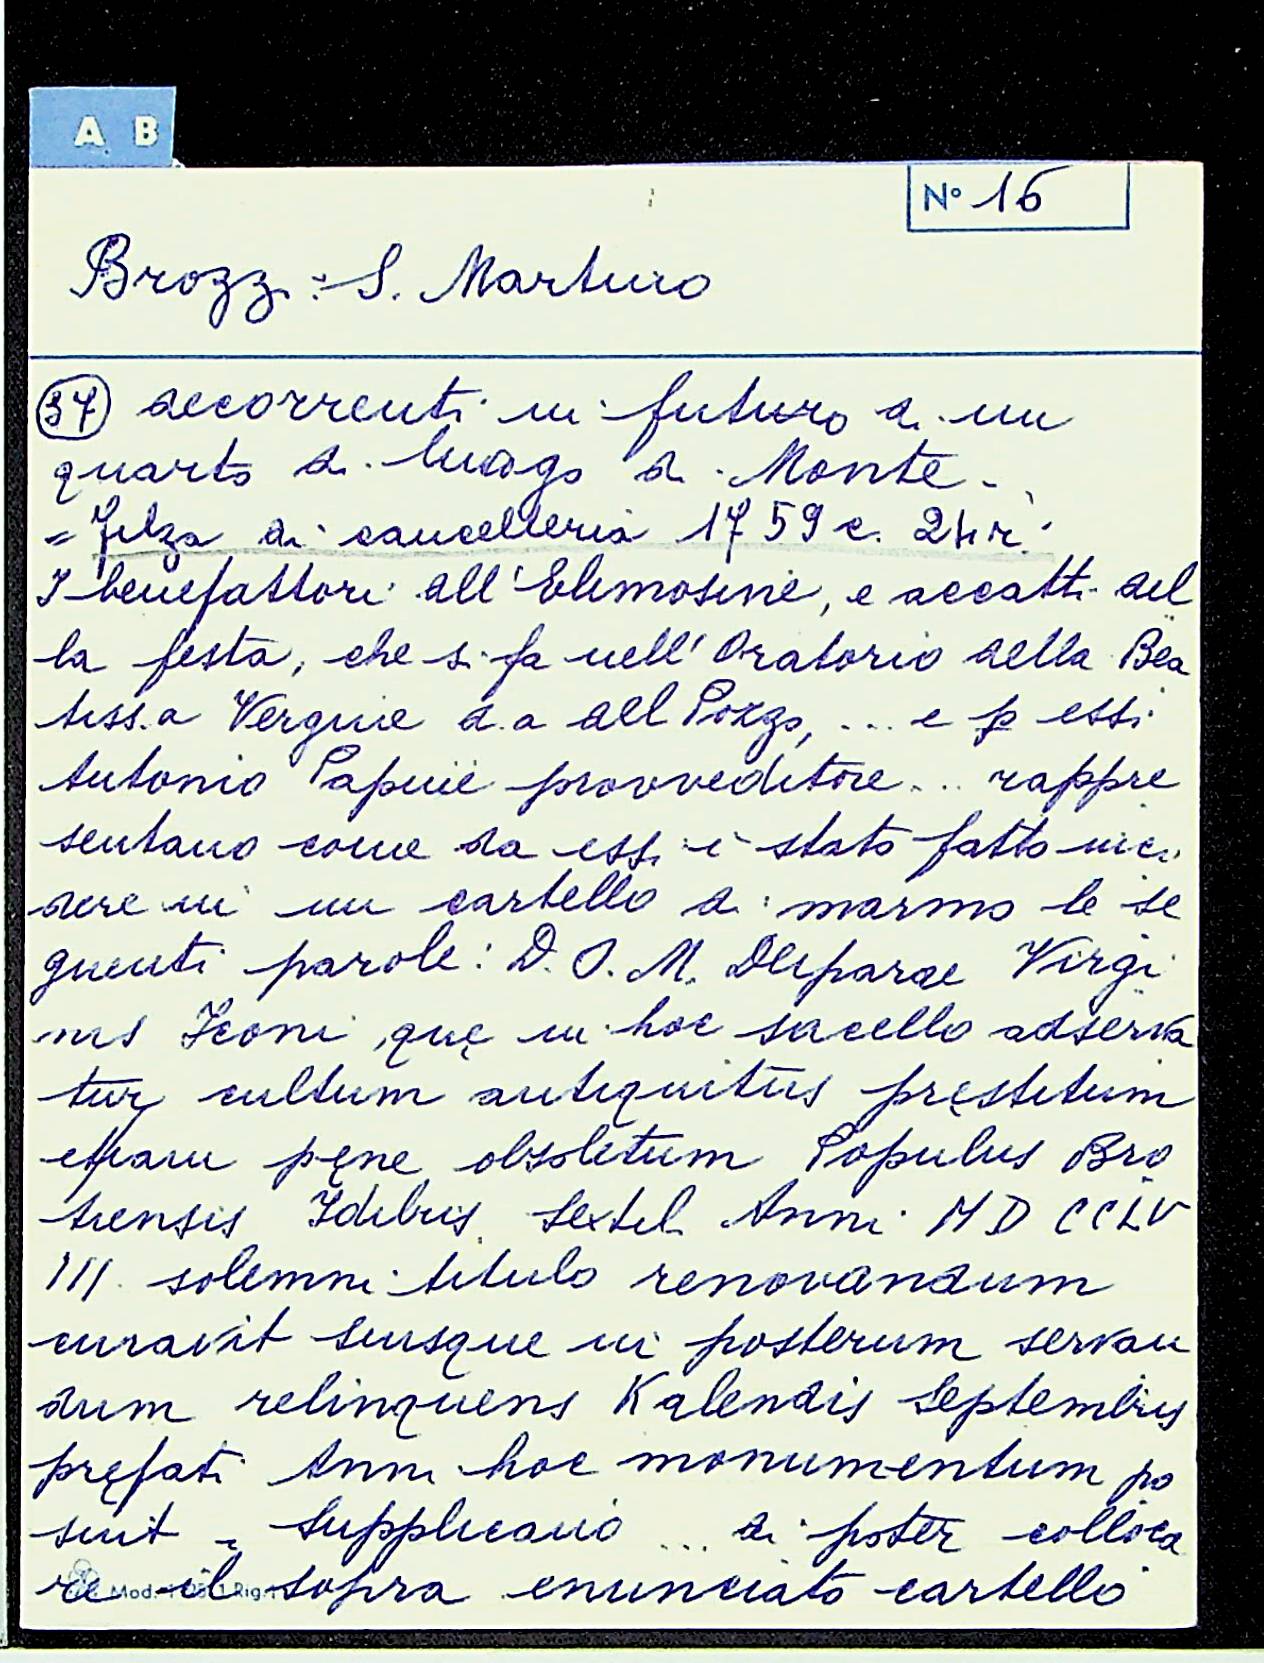 A B
N° 16
Brozzi: S. Martino
37 decorrenti in futuro di un
quarto di luogo di Monte.
= Filza di cancelleria 1759 c. 24r.
I benefattori all'Elemosine, e accatti del
la festa, che si fa nell'Oratorio della Bea
tiss.a Vergine d.a del Pozzo, ... e p essi
Antonio Papini provveditore ... rappre
sentano come da essi è stato fatto inci
dere in un cartello di marmo le se
guenti parole: D. O. M. Deiparae Virgi
nis Iconi, quę in hoc sacello adserva
tur, cultum antiquitus pręstitum
etiam pęne obsoletum Populus Bro
tiensis Idibus Sextil Anni MDCCLV
III solemni titulo renovandum
curavit suisque in posterum servan
dum relinquens Kalendis Septembris
pręfati Anni hoc monumentum po
suit = Supplicano ... di poter colloca
re il sopra enunciato cartello